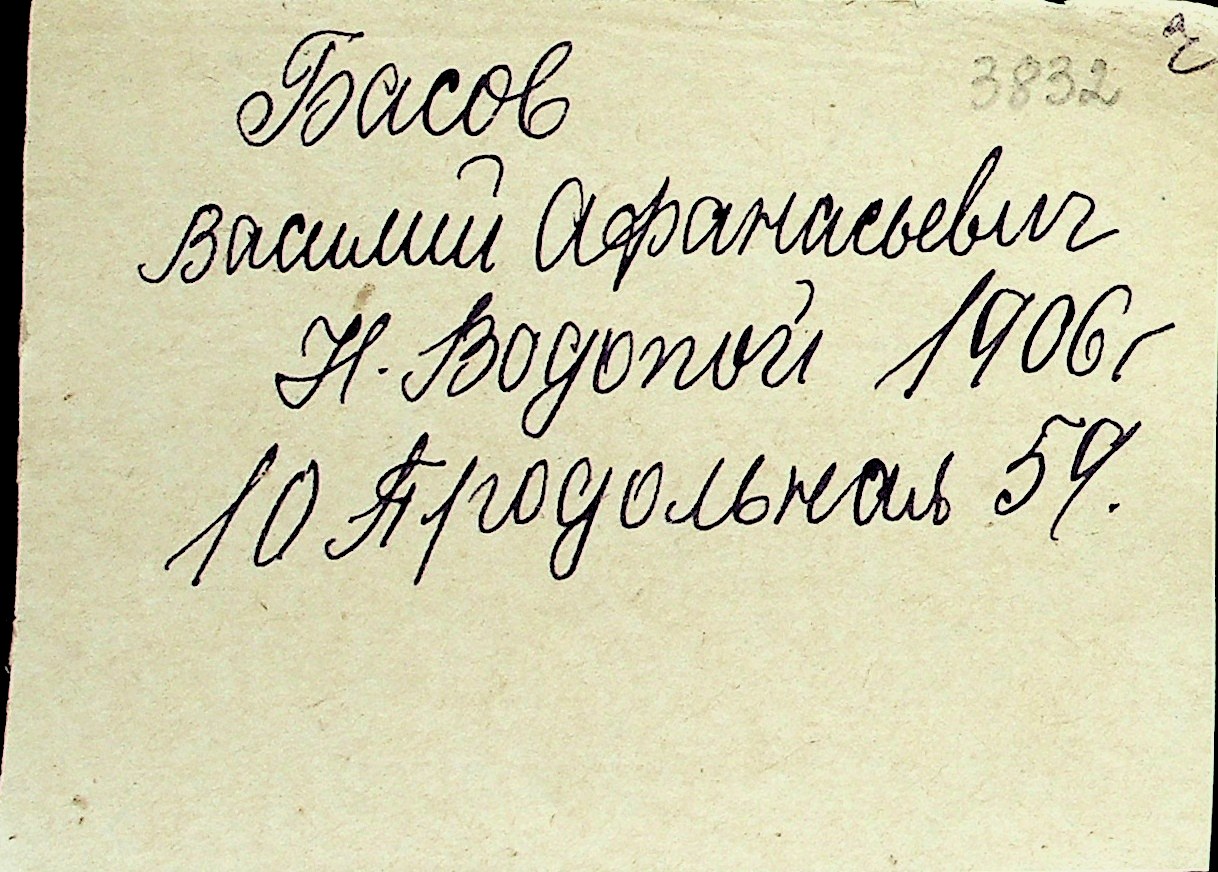 3832
Басов
Василий Афанасьевич
Н. Водопой 1906г
10 Продольная 59.